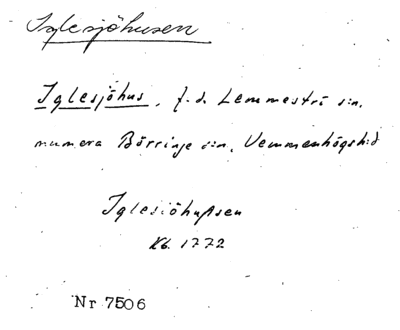 Iglesjöhusen
Iglesjöhus, f.d. Lemmeströ sn,
numera Börringe sn, Vemmenhögs hd
Iglesiöhussen
Kb. 1772
Nr 7506